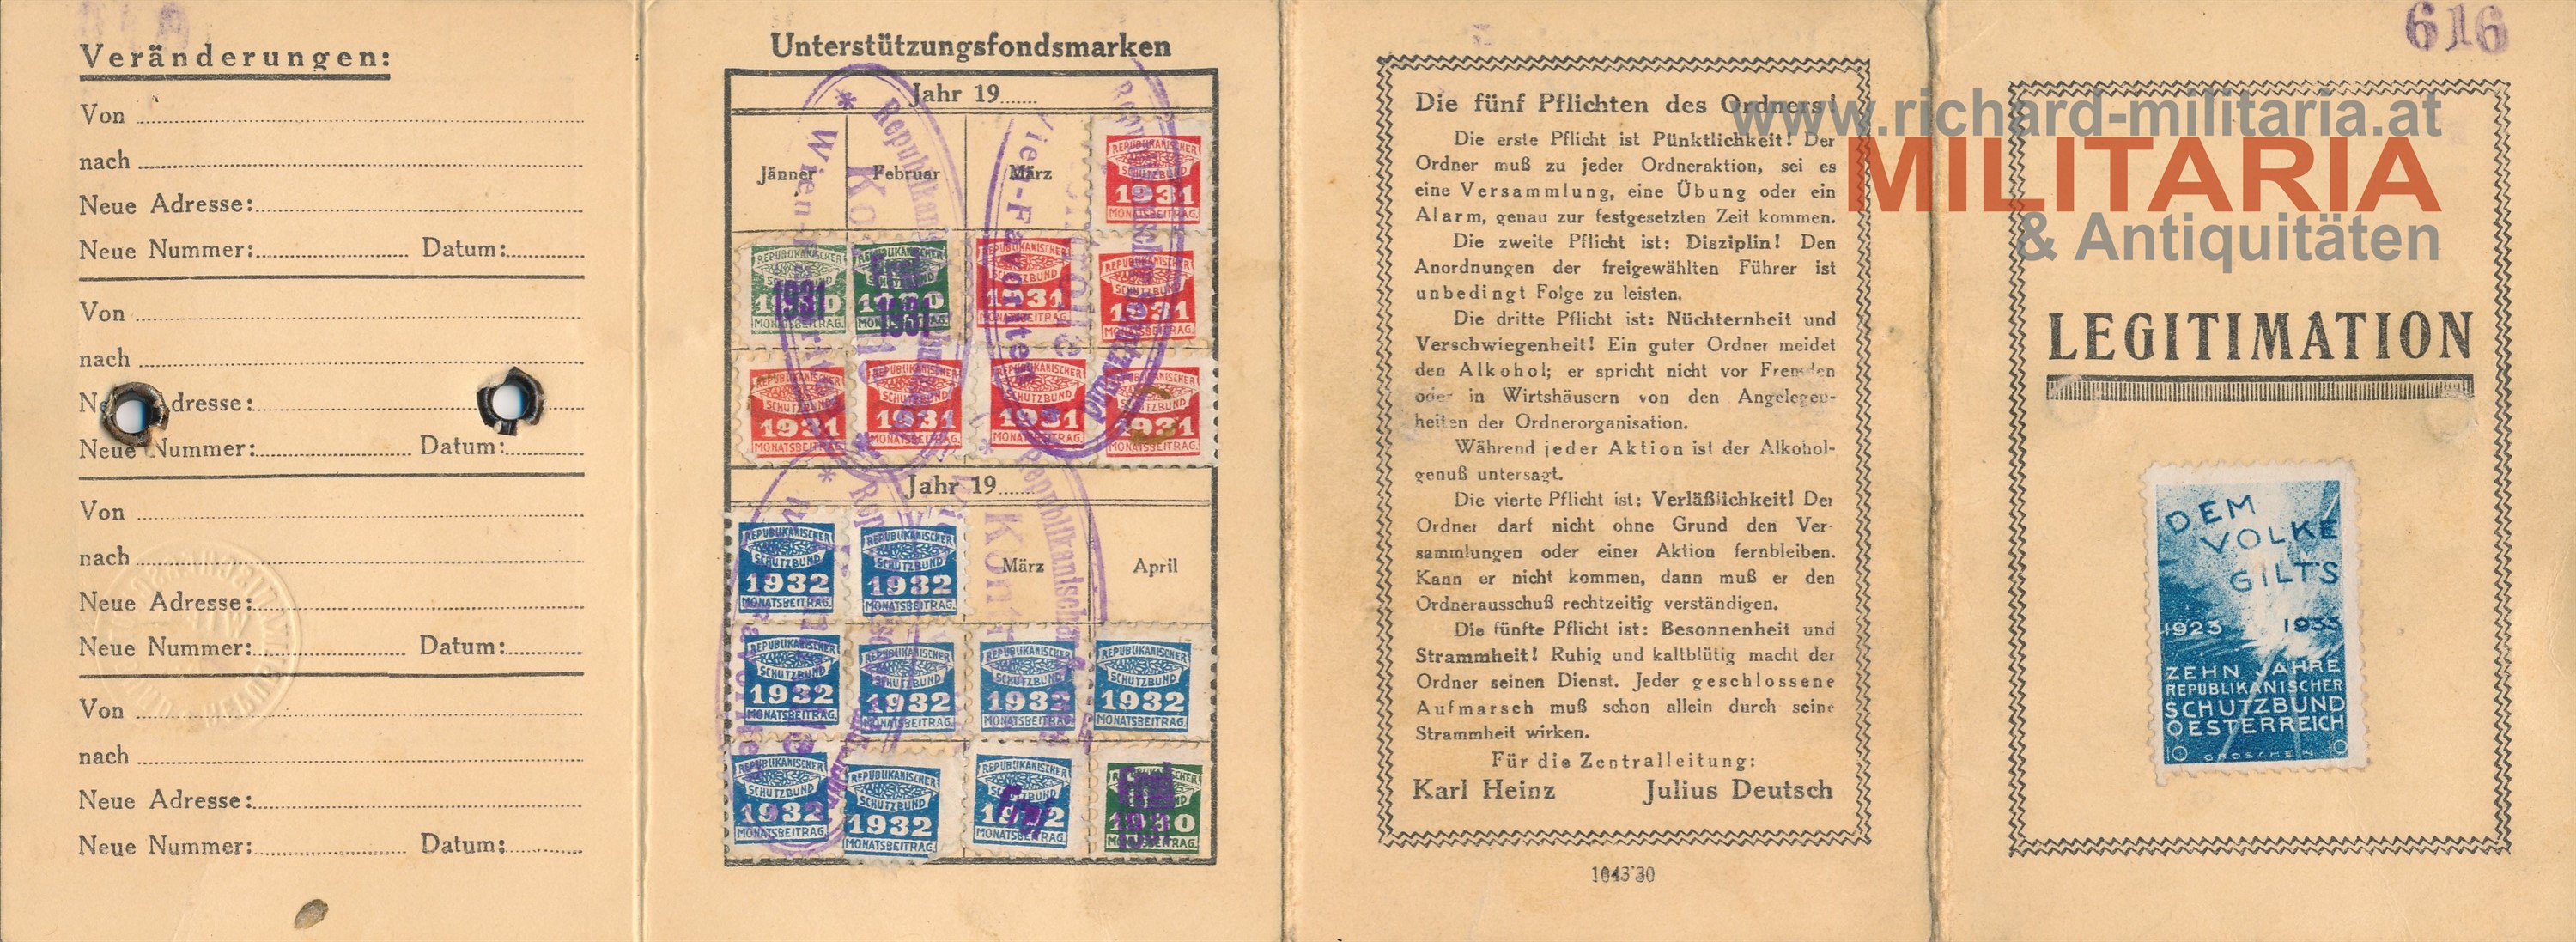 Veränderungen:
Von
nach
Neue Adresse:
Neue Nummer: Datum:
Von
nach
Neue Adresse:
Neue Nummer: Datum:
Von
nach
Neue Adresse:
Neue Nummer: Datum:
Von
nach
Neue Adresse:
Neue Nummer: Datum:
Unterstützungsfondsmarken
Jahr 19
Jänner Februar März
REPUBLIKANISCHER
SCHUTZBUND
1931
MONATSBEITRAG.
REPUBLIKANISCHER REPUBLIKANISCHER REPUBLIKANISCHER REPUBLIKANISCHER
SCHUTZBUND SCHUTZBUND SCHUTZBUND SCHUTZBUND
1931 1931 1931 1931
MONATSBEITRAG. MONATSBEITRAG. MONATSBEITRAG. MONATSBEITRAG.
REPUBLIKANISCHER REPUBLIKANISCHER REPUBLIKANISCHER REPUBLIKANISCHER
SCHUTZBUND SCHUTZBUND SCHUTZBUND SCHUTZBUND
1931 1931 1931 1931
MONATSBEITRAG. MONATSBEITRAG. MONATSBEITRAG. MONATSBEITRAG.
Republikanischer Schutzbund
Kontrolle
Wien-Favoriten
Jahr 19
REPUBLIKANISCHER REPUBLIKANISCHER
SCHUTZBUND SCHUTZBUND
1932 1932 März April
MONATSBEITRAG. MONATSBEITRAG.
REPUBLIKANISCHER REPUBLIKANISCHER REPUBLIKANISCHER REPUBLIKANISCHER
SCHUTZBUND SCHUTZBUND SCHUTZBUND SCHUTZBUND
1932 1932 1932 1932
MONATSBEITRAG. MONATSBEITRAG. MONATSBEITRAG. MONATSBEITRAG.
REPUBLIKANISCHER REPUBLIKANISCHER REPUBLIKANISCHER
SCHUTZBUND SCHUTZBUND SCHUTZBUND
1932 1932 1932 1930
MONATSBEITRAG. MONATSBEITRAG. MONATSBEITRAG.
Die fünf Pflichten des Ordners!
Die erste Pflicht ist Pünktlichkeit! Der
Ordner muß zu jeder Ordneraktion, sei es
eine Versammlung, eine Übung oder ein
Alarm, genau zur festgesetzten Zeit kommen.
Die zweite Pflicht ist: Disziplin! Den
Anordnungen der freigewählten Führer ist
unbedingt Folge zu leisten.
Die dritte Pflicht ist: Nüchternheit und
Verschwiegenheit! Ein guter Ordner meidet
den Alkohol; er spricht nicht vor Fremden
oder in Wirtshäusern von den Angelegen-
heiten der Ordnerorganisation.
Während jeder Aktion ist der Alkohol-
genuß untersagt.
Die vierte Pflicht ist: Verläßlichkeit! Der
Ordner darf nicht ohne Grund den Ver-
sammlungen oder einer Aktion fernbleiben.
Kann er nicht kommen, dann muß er den
Ordnerausschuß rechtzeitig verständigen.
Die fünfte Pflicht ist: Besonnenheit und
Strammheit! Ruhig und kaltblütig macht der
Ordner seinen Dienst. Jeder geschlossene
Aufmarsch muß schon allein durch seine
Strammheit wirken.
Für die Zentralleitung:
Karl Heinz Julius Deutsch
1043 30
616
www.richard-militaria.at
MILITARIA
& Antiquitäten
LEGITIMATION
DEM
VOLKE
GILTS
1923 1933
ZEHN JAHRE
REPUBLIKANISCHER
SCHUTZBUND
OESTERREICH
10 GROSCHEN 10